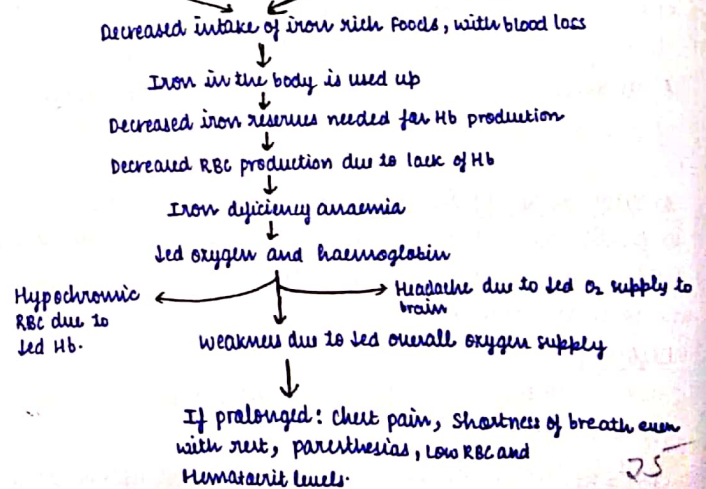 Decreased intake of iron rich foods, with blood loss
Iron in the body is used up
Decreased iron reserves needed for Hb production
Decreased RBC production due to lack of Hb
Iron deficiency anaemia
↓ed oxygen and haemoglobin
Hypochromic
RBC due to
↓ed Hb.
Headache due to ↓ed O₂ supply to
brain
Weakness due to ↓ed overall oxygen supply
If prolonged: Chest pain, Shortness of breath even
with rest, paresthesias, Low RBC and
Hematocrit levels.